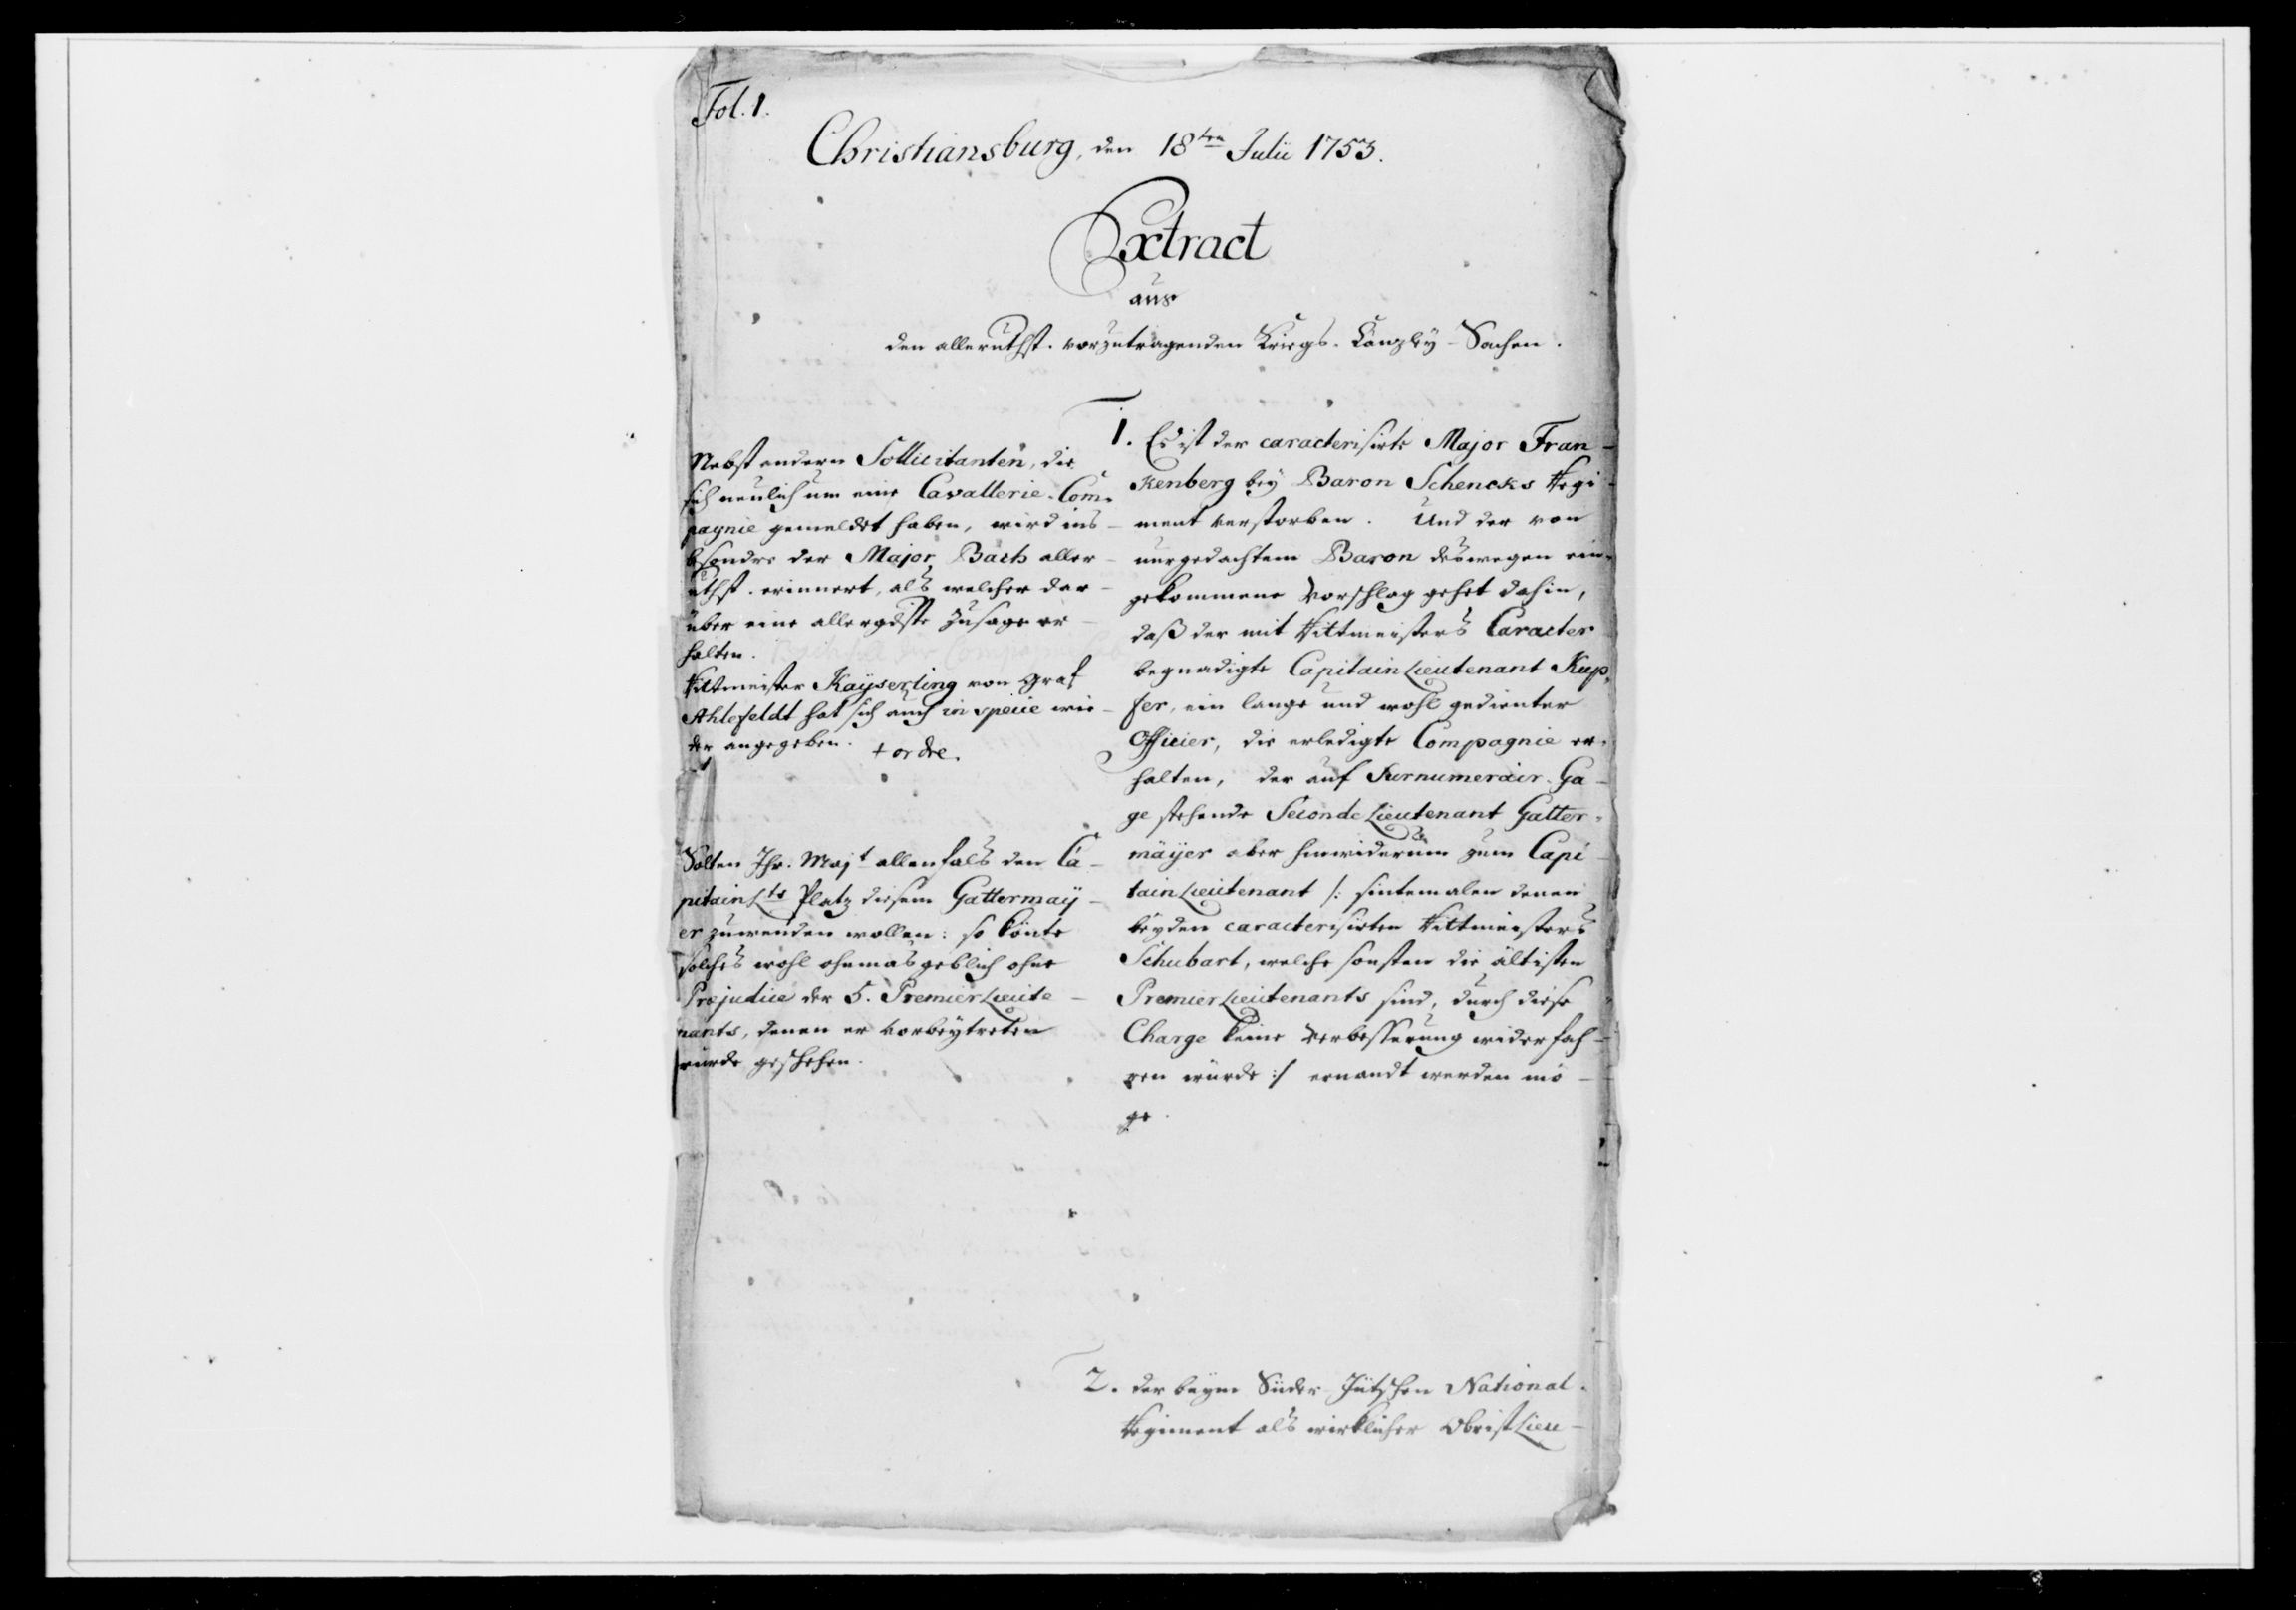 Fol. 1.
Christiansburg, den 18ten Julii 1753.
Extract
aus
den alleruthst. vorzutragenden Kriegs-Canzley-Sachen.
Nebst andern Sollicitanten, die
sich neulich um eine Cavallerie-Com-
pagnie gemeldet haben, wird ins-
besondre der Major Bach aller-
uthst. erinnert, als welcher dar-
über eine allergdste Zusage er-
halten. Bach soll die Compagnie
Rittmeister Kayserling von Graf
Ahlefeldt hat sich auch in specie wie-
der angegeben.
+ ordre.
Solten Ihr. Majt allenfals den Ca-
pitain Lts Platz diesem Gattermay-
er zuwenden wollen: so könte
solches wohl ohnmasgeblich ohne
Præjudice der 5. Premier Lieute-
nants, denen er vorbeytreten
würde geschehen.
1. Es ist der caracterisirte Major Fran-
kenberg bey Baron Schencks Regi-
ment verstorben. Und der von
nurgedachtem Baron deswegen ein-
gekommene Vorschlag gehet dahin,
daß der mit Rittmeisters Caracter
begnadigte Capitain Lieutenant Kup-
fer, ein lange und wohl gedienter
Officier, die erledigte Compagnie er-
halten, der auf Surnumerair-Ga-
ge stehende Seconde Lieutenant Gatter-
mäyer aber hinwiderum zum Capi-
tain Lieutenant /: sintemalen denen
beyden caracterisirten Rittmeisters
Schubart, welche sonsten die ältisten
Premier Lieutenants sind, durch diese
Charge keine Verbesserung widerfah-
ren würde :/ ernandt werden mö-
ge.
2. der beym Süder-Jütschen National-
Regiment als wirklicher Obrist Lieu-